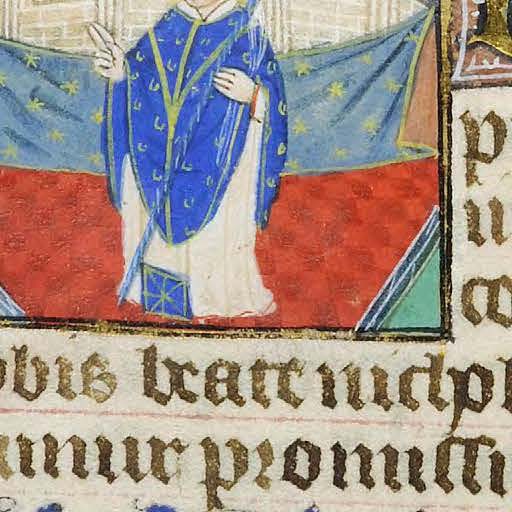 p
u
co
obis beate nichol
amur promissi